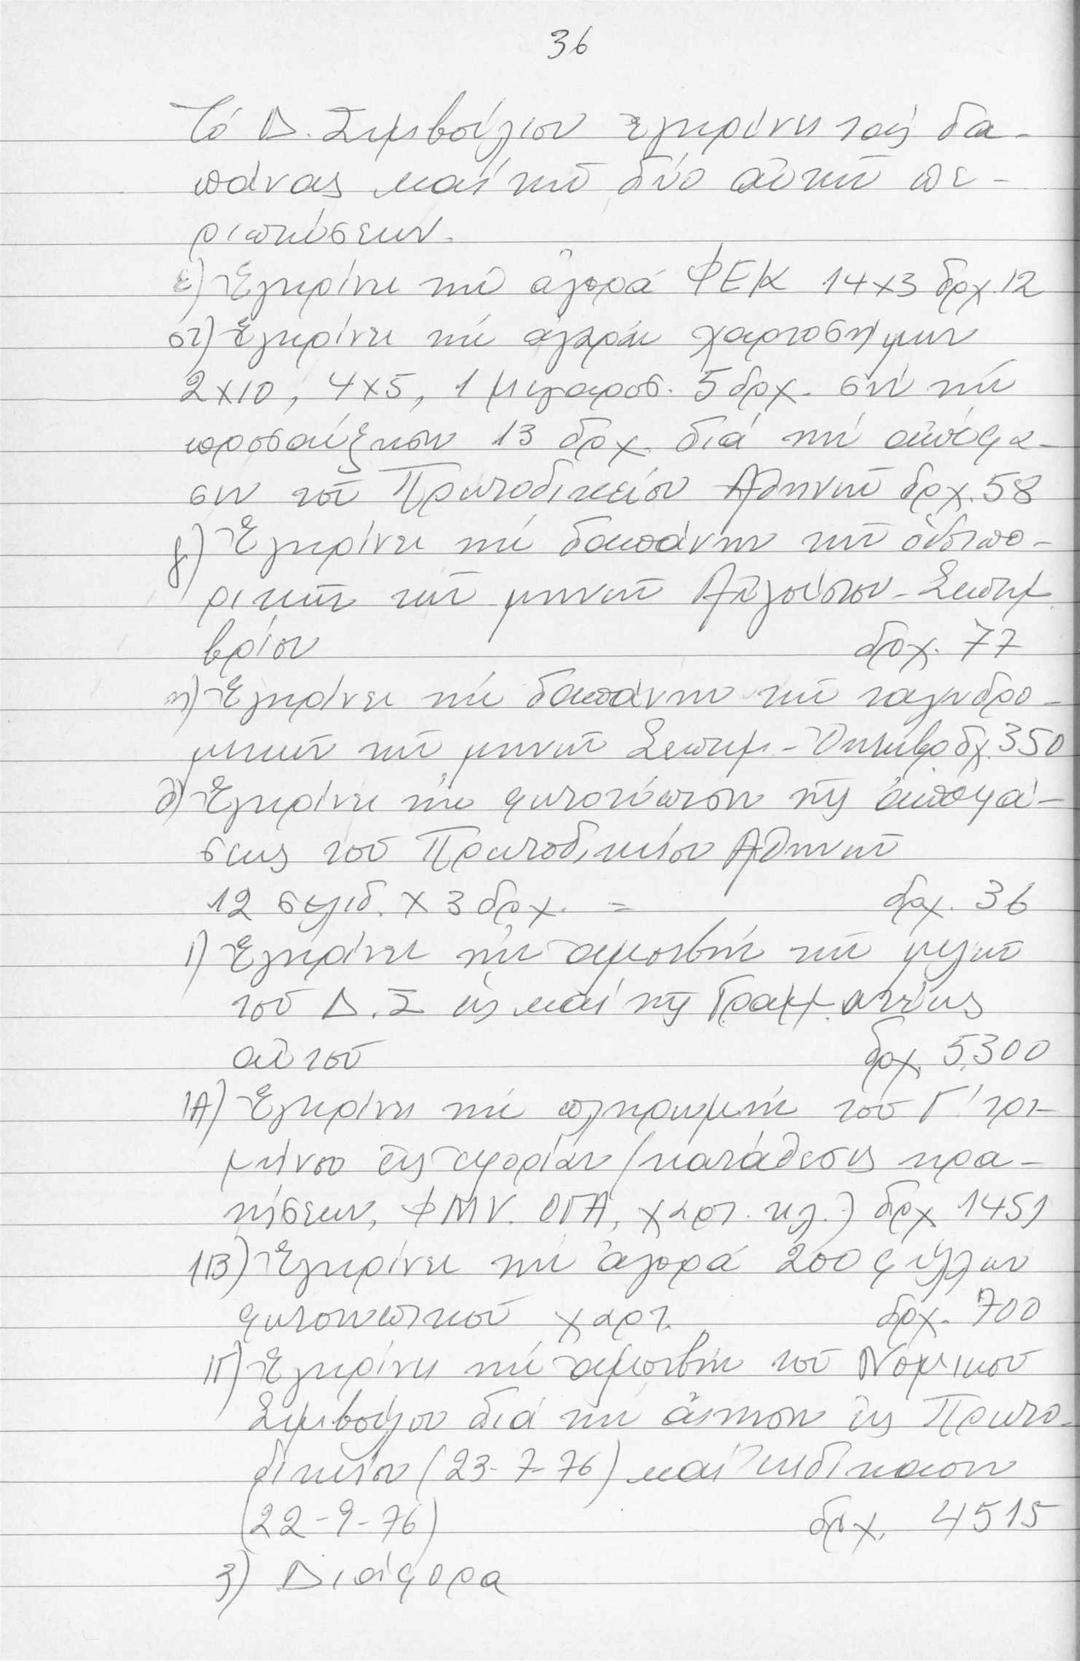 36
Τό Δ. Συμβούλιον ἐγκρίνει τάς δα-
πάνας καί τῶν δύο αὐτῶν πε-
ριπτώσεων.
ε) Ἐγκρίνει τήν ἀγορά ΦΕΚ 14x3 δρχ. 12
στ) Ἐγκρίνει τήν ἀγοράν χαρτοσήμων
2x10, 4x5, 1 μεγαροσ. 5 δρχ. σύν τήν
προσαύξησιν 13 δρχ. διά τήν ἀπόφα-
σιν τοῦ Πρωτοδικείου Ἀθηνῶν δρχ. 58
ζ) Ἐγκρίνει τήν δαπάνην τῶν ὁδοιπο-
ρικῶν τῶν μηνῶν Αὐγούστου - Σεπτεμ
βρίου δρχ. 77
η) Ἐγκρίνει τήν δαπάνην τῶν ταχυδρο-
μικῶν τῶν μηνῶν Σεπτεμ - Ὀκτωβρ δρχ. 350
θ) Ἐγκρίνει τήν φωτοτύπησιν τῆς ἀποφά-
σεως τοῦ Πρωτοδικείου Ἀθηνῶν
12 σελίδ. x 3 δρχ. = δρχ. 36
ι) Ἐγκρίνει τήν ἀμοιβήν τῶν μελῶν
τοῦ Δ.Σ ὡς καί τῆς Γραμματέως
αὐτοῦ δρχ. 5.300
ΙΑ) Ἐγκρίνει τήν πληρωμήν τοῦ Γ' τρι-
μήνου εἰς ἐφορίαν (καταθέσεις κρα-
τήσεων, ΦΜΥ. ΟΓΑ, χαρτ. κλ.) δρχ 1451
ΙΒ) Ἐγκρίνει τήν ἀγορά 200 φύλλων
φωτοτυπικοῦ χαρτ. δρχ. 700
ΙΓ) Ἐγκρίνει τήν ἀμοιβήν τοῦ Νομικοῦ
Συμβούλου διά τήν αἴτησιν εἰς Πρωτο-
δικεῖον (23-7-76) καί ἐκδίκασιν
(22-9-76) δρχ. 4515
3) Διάφορα